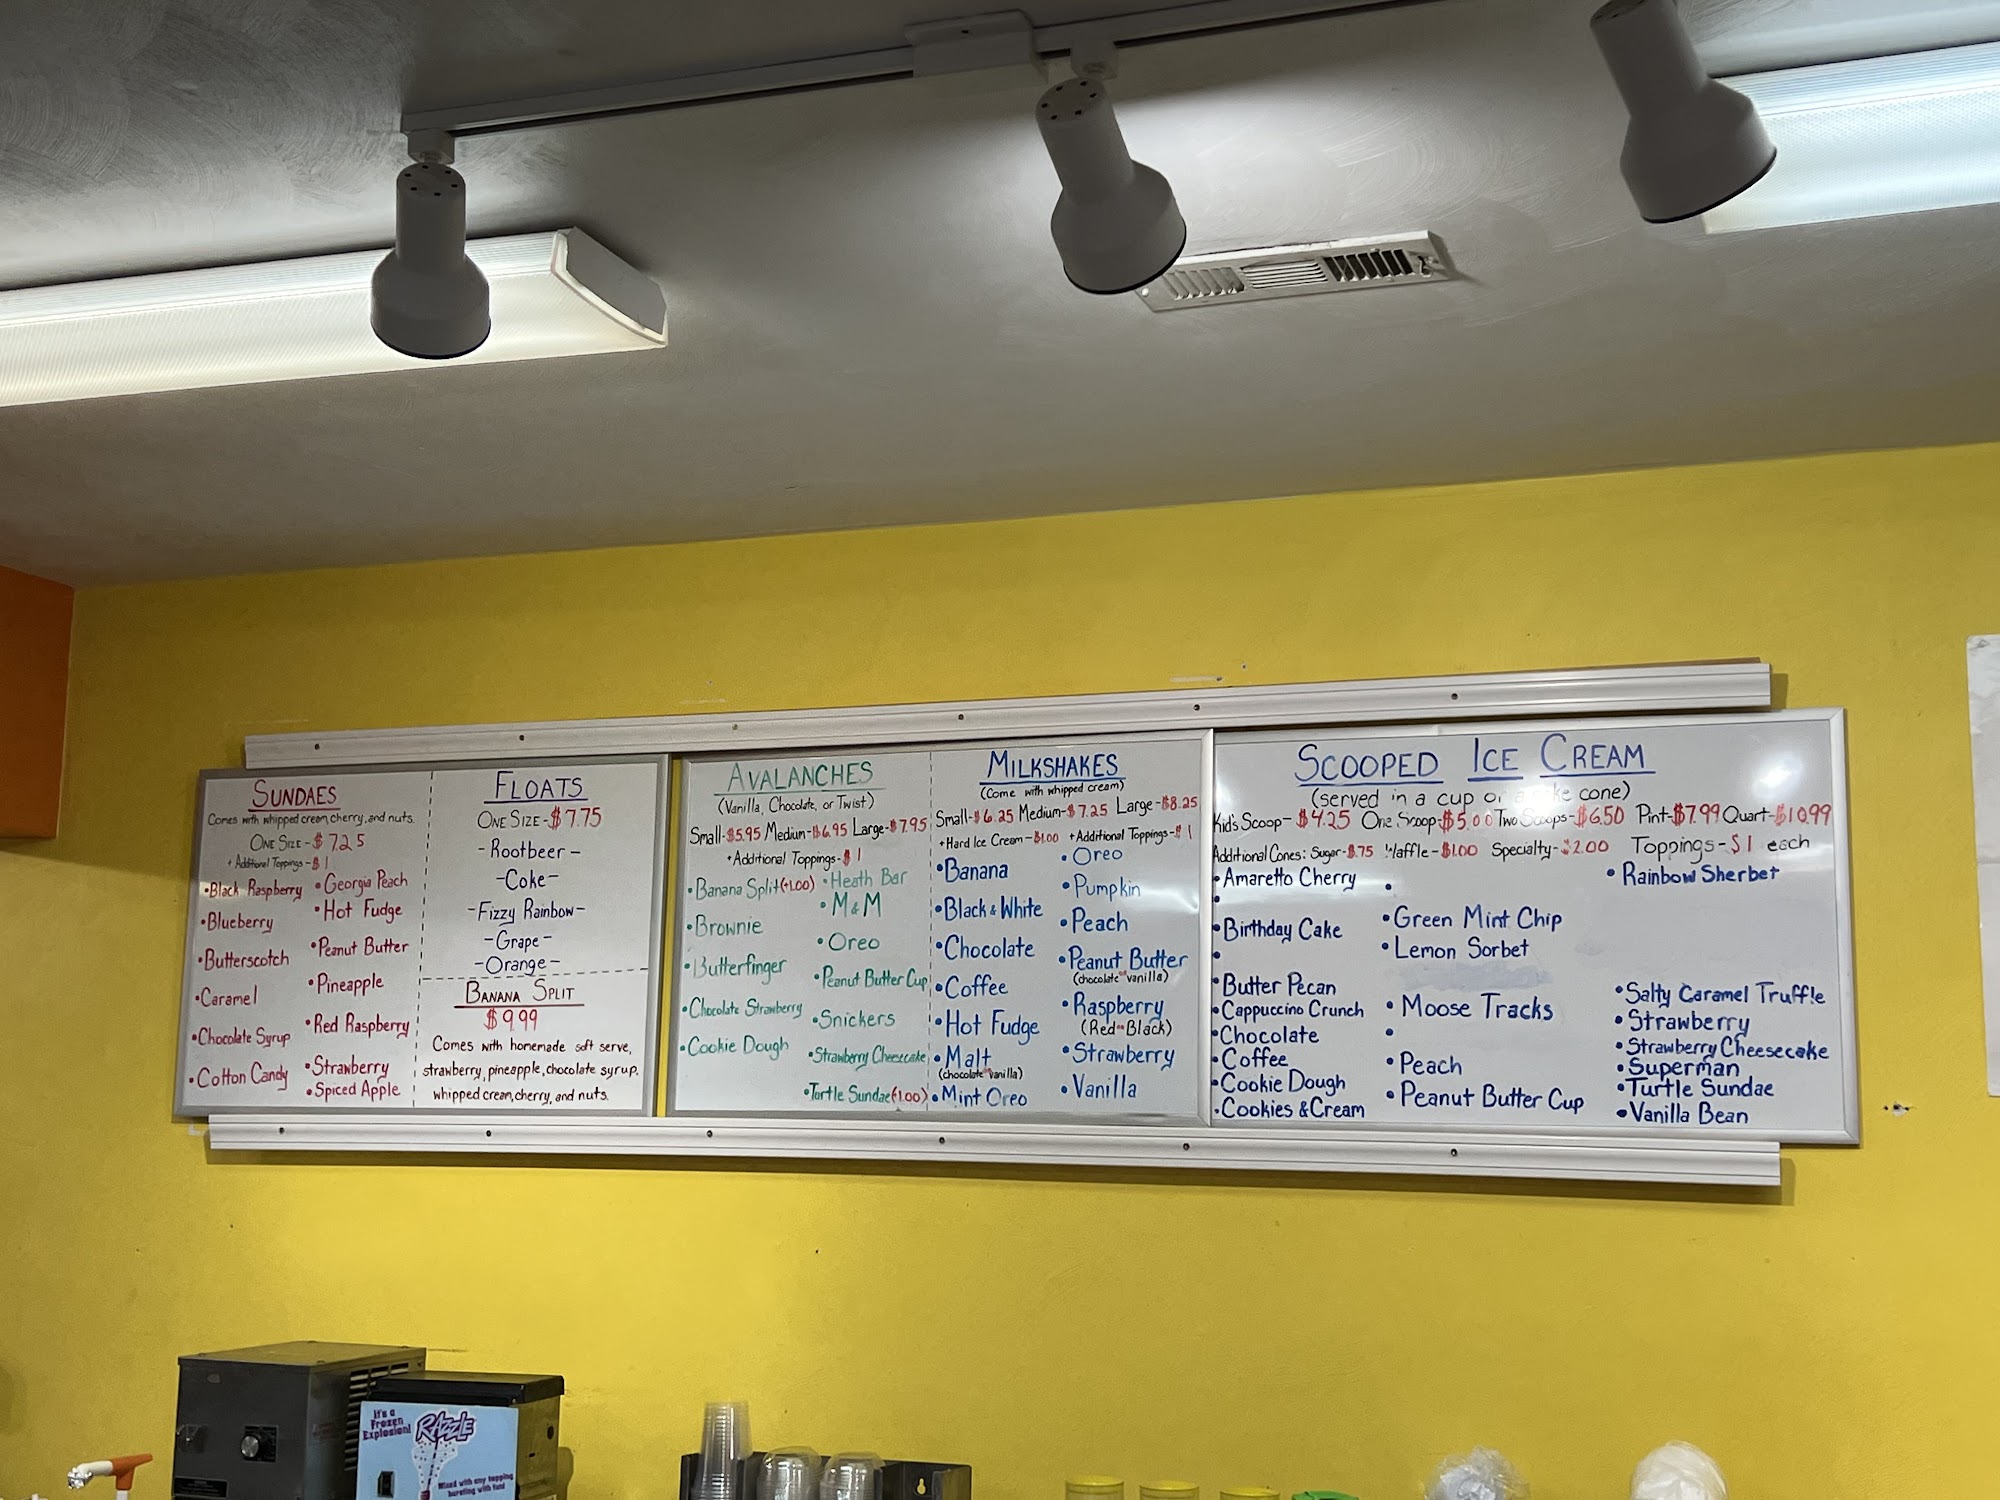 SUNDAES
Comes with whipped cream, cherry, and nuts.
ONE SIZE - $7.25
+ Additional Toppings - $1
• Black Raspberry
• Blueberry
• Butterscotch
• Caramel
• Chocolate Syrup
• Cotton Candy
• Georgia Peach
• Hot Fudge
• Peanut Butter
• Pineapple
• Red Raspberry
• Strawberry
• Spiced Apple
FLOATS
ONE SIZE - $7.75
- Rootbeer -
- Coke -
- Fizzy Rainbow -
- Grape -
- Orange -
BANANA SPLIT
$9.99
Comes with homemade soft serve,
strawberry, pineapple, chocolate syrup,
whipped cream, cherry, and nuts.
AVALANCHES
(Vanilla, Chocolate, or Twist)
Small - $5.95 Medium - $6.95 Large - $7.95
+ Additional Toppings - $1
• Banana Split (+1.00)
• Brownie
• Butterfinger
• Chocolate Strawberry
• Cookie Dough
• Heath Bar
• M&M
• Oreo
• Peanut Butter Cup
• Snickers
• Strawberry Cheesecake
• Turtle Sundae (+1.00)
MILKSHAKES
(Come with whipped cream)
Small - $6.25 Medium - $7.25 Large - $8.25
+ Hard Ice Cream - $1.00 + Additional Toppings - $1
• Banana
• Black & White
• Chocolate
• Coffee
• Hot Fudge
• Malt
(chocolate or vanilla)
• Mint Oreo
• Oreo
• Pumpkin
• Peach
• Peanut Butter
(chocolate or vanilla)
• Raspberry
(Red or Black)
• Strawberry
• Vanilla
SCOOPED ICE CREAM
(served in a cup or a cake cone)
Kid's Scoop - $4.25 One Scoop - $5.00 Two Scoops - $6.50 Pint - $7.99 Quart - $10.99
Additional Cones: Sugar - $.75 Waffle - $1.00 Specialty - $2.00 Toppings - $1 each
• Amaretto Cherry
•
• Birthday Cake
•
• Butter Pecan
• Cappuccino Crunch
• Chocolate
• Coffee
• Cookie Dough
• Cookies & Cream
•
• Green Mint Chip
• Lemon Sorbet
• Moose Tracks
•
• Peach
• Peanut Butter Cup
• Rainbow Sherbet
• Salty Caramel Truffle
• Strawberry
• Strawberry Cheesecake
• Superman
• Turtle Sundae
• Vanilla Bean
It's a
Frozen
Explosion!
RAZZLE
Mixed with any topping
bursting with fun!